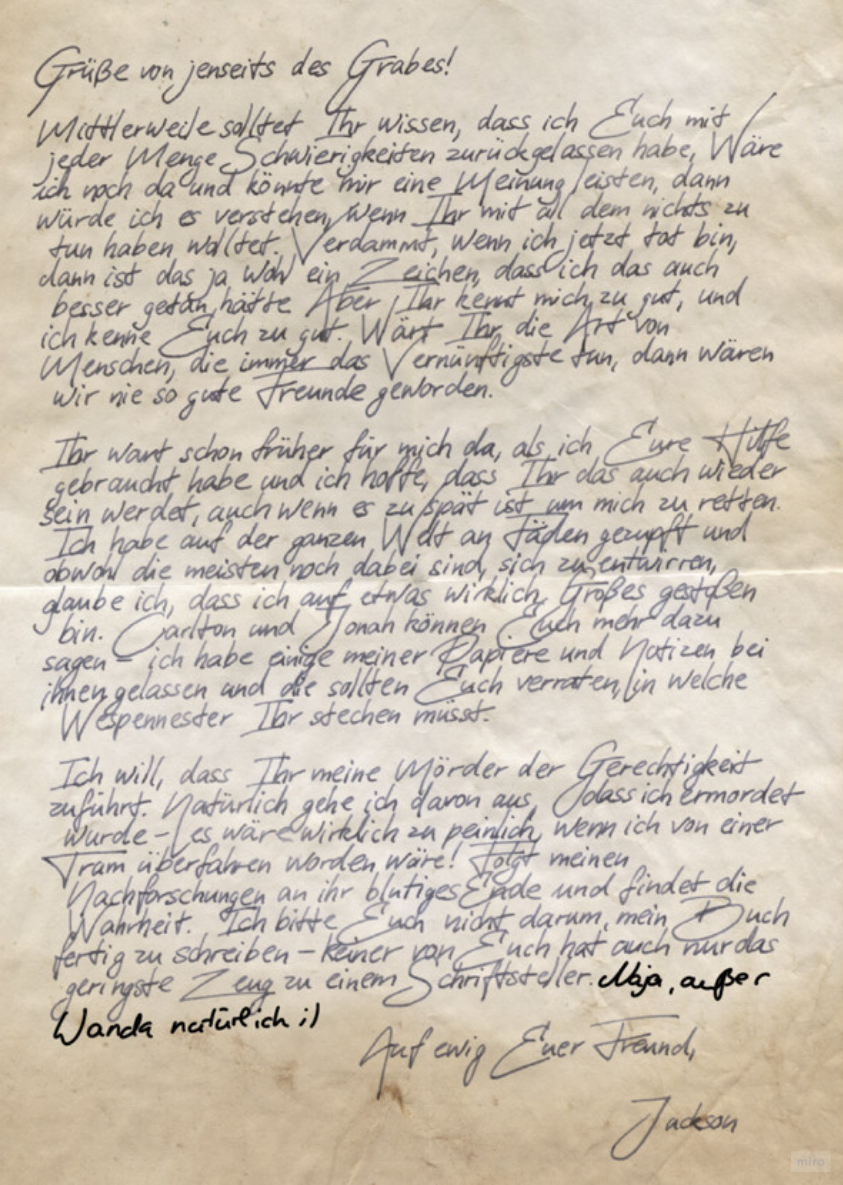 Grüße von jenseits des Grabes!
Mittlerweile solltet Ihr wissen, dass ich Euch mit
jeder Menge Schwierigkeiten zurückgelassen habe. Wäre
ich noch da und könnte mir eine Meinung leisten, dann
würde ich es verstehen, wenn Ihr mit all dem nichts zu
tun haben wolltet. Verdammt, wenn ich jetzt tot bin,
dann ist das ja wohl ein Zeichen, dass ich das auch
besser getan hätte. Aber Ihr kennt mich zu gut, und
ich kenne Euch zu gut. Wärt Ihr die Art von
Menschen, die immer das Vernünftigste tun, dann wären
wir nie so gute Freunde geworden.
Ihr wart schon früher für mich da, als ich Eure Hilfe
gebraucht habe und ich hoffe, dass Ihr das auch wieder
sein werdet, auch wenn es zu spät ist um mich zu retten.
Ich habe auf der ganzen Welt an Fäden gezupft und
obwohl die meisten noch dabei sind, sich zu entwirren,
glaube ich, dass ich auf etwas wirklich Großes gestoßen
bin. Carlton und Jonah können Euch mehr dazu
sagen – ich habe einige meiner Papiere und Notizen bei
ihnen gelassen und die sollten Euch verraten, in welche
Wespennester Ihr stechen müsst.
Ich will, dass Ihr meine Mörder der Gerechtigkeit
zuführt. Natürlich gehe ich davon aus, dass ich ermordet
wurde – es wäre wirklich zu peinlich, wenn ich von einer
Tram überfahren worden wäre! Folgt meinen
Nachforschungen an ihr blutiges Ende und findet die
Wahrheit. Ich bitte Euch nicht darum, mein Buch
fertig zu schreiben – keiner von Euch hat auch nur das
geringste Zeug zu einem Schriftsteller. Naja, außer
Wanda natürlich ;)
Auf ewig Euer Freund,
Jackson
miro